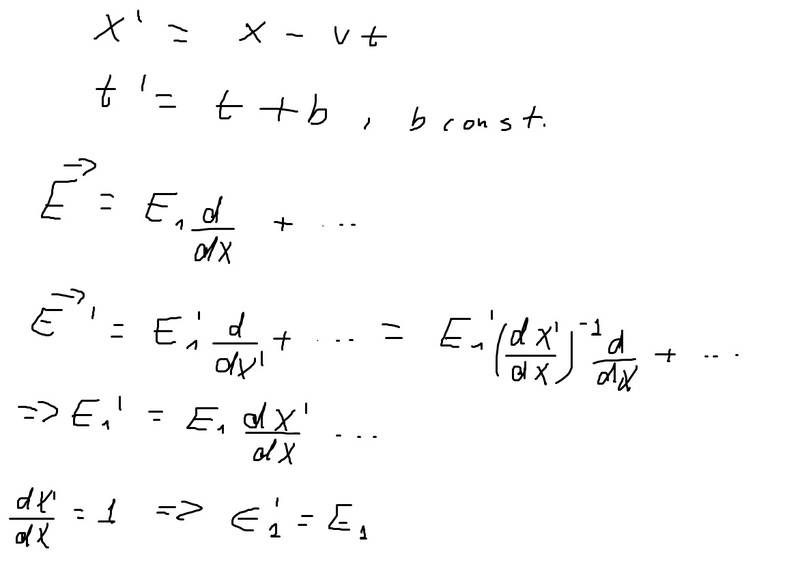 x' = x - vt
t' = t + b , b const.
E⃗ = E₁ d/dx + ...
E⃗' = E₁' d/dx' + ... = E₁' (dx'/dx)⁻¹ d/dx + ...
=> E₁' = E₁ dx'/dx ...
dx'/dx = 1 => E₁' = E₁